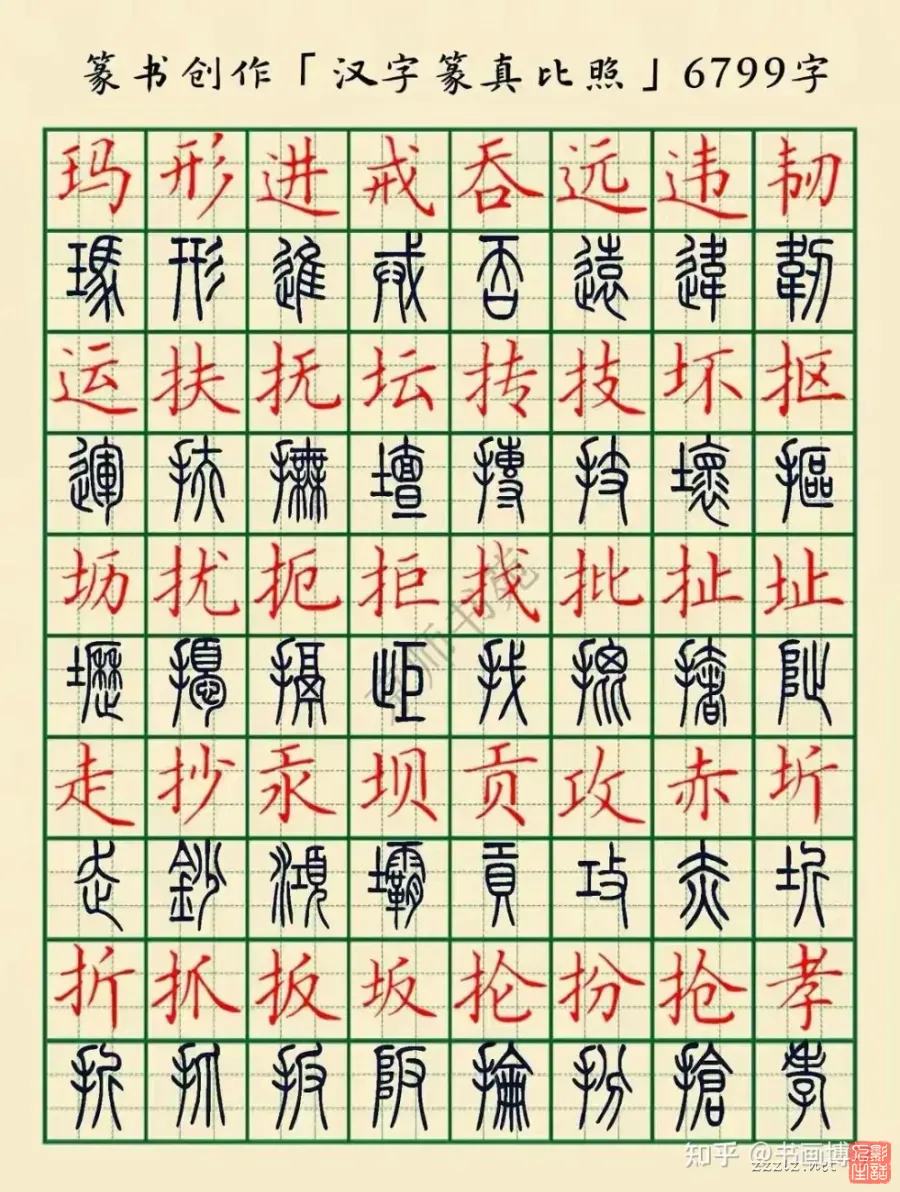 篆书创作「汉字篆真比照」6799字
玛形进戒吞远违韧
瑪形進戒吞遠違韌
运扶抚坛抟技坏抠
運扶撫壇摶技壞摳
坜扰扼拒找批扯址
壢擾搹歫找撦阯
走抄汞坝贡攻赤圻
走鈔澒壩貢攻赤圻
折抓扳坂抡扮抢孝
折抓扳阪掄扮搶孝
师书苑
知乎 @书画博